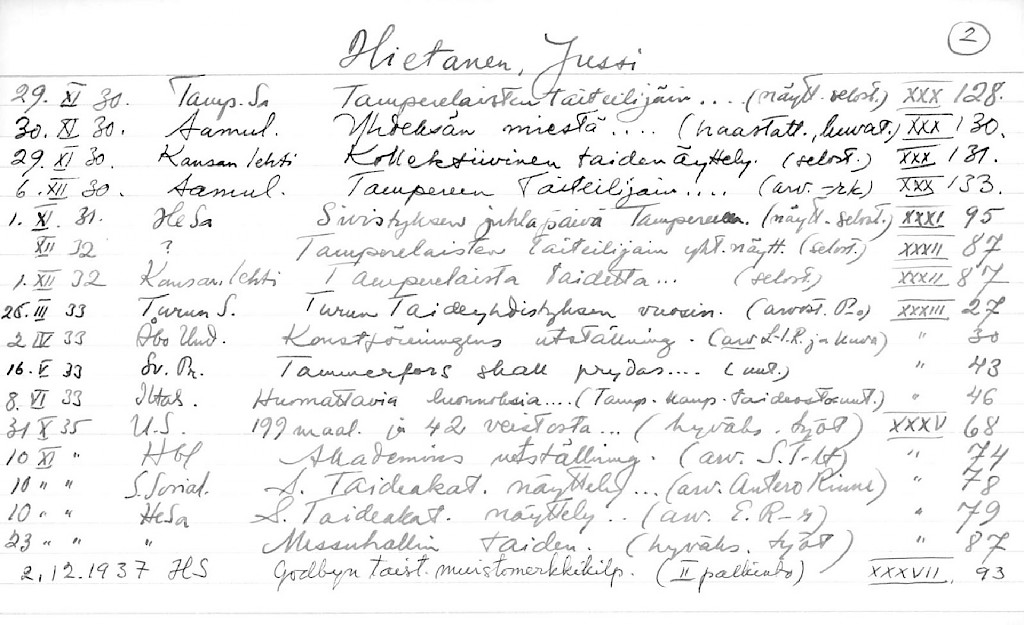 2
Hietanen, Jussi
29. XI 30. Tamp. Sa Tamperelaisten taiteilijain .... (näytt. selost.) XXX 128.
30. XI 30. Aamul. Yhdeksän miestä .... (haastatt., kuvat.) XXX 130.
29. XI 30. Kansan lehti Kollektiivinen taidenäyttely. (selost.) XXX 131.
6. XII 30. Aamul. Tampereen Taiteilijain .... (arv. -rk) XXX 133.
1. XI. 31. HeSa Sivistyksen juhlapäivä Tampereen. (näytt. selost.) XXXI 95
XII 32 ? Tamperelaisten Taiteilijain yht. näytt. (selost.) XXXII 87
1. XII 32 Kansan lehti Tamperelaista taidetta ... (selost.) XXXII 87
25. III 33 Turun S. Turun Taideyhdistyksen vuosin. (arvost. P-o) XXXIII 27
2 IV 33 Åbo Und. Konstföreningens utställning. (arv L-I.R. ja kuva) " 30
16. V 33 Sv. Pr. Tammerfors skall prydas .... (uut.) " 43
8. VI 33 Iltas. Huomattavia luonnoksia .... (Tamp. kaup. taideostot uut.) " 46
31 X 35 U.S. 199 maal. ja 42 veistosta ... (hyväks. työt) XXXV 68
10 XI " Hbl Akademins utställning. (arv. S. T-lf) " 74
10 " " S. Sosial. S. Taideakat. näyttely ... (arv. Antero Rinne) " 78
10 " " HeSa S. Taideakat. näyttely .. (arv. E. R-r) " 79
23 " " " Messuhallin taiden. (hyväks. työt) " 87
2.12.1937 HS Godbyn taist. muistomerkkikilp. (II palkinto) XXXVII, 93